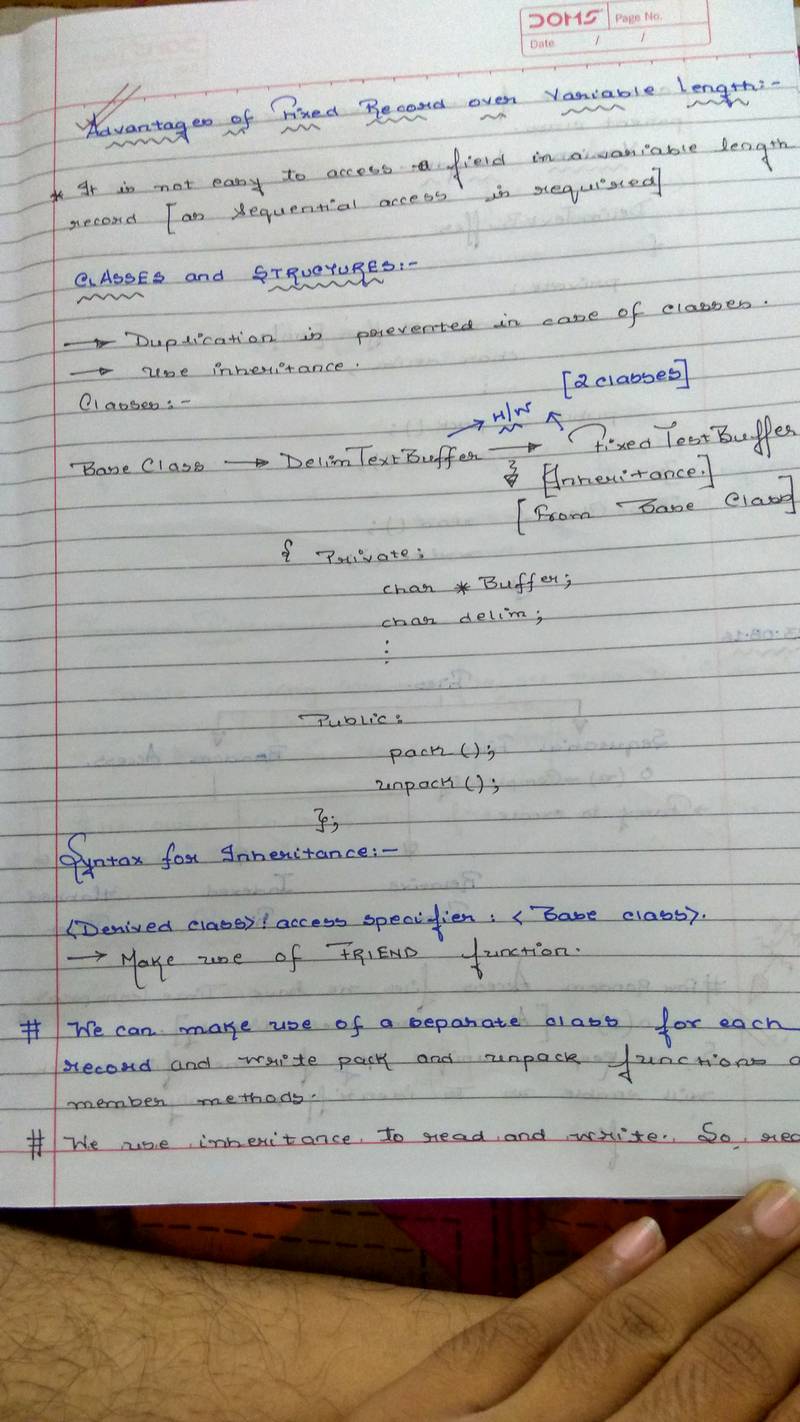 DOMS Page No.
Date / /
Advantages of Fixed Record over Variable Length:-
* It is not easy to access a field in a variable length
record [as sequential access is required]
CLASSES and STRUCTURES:-
→ Duplication is prevented in case of classes.
→ Use inheritance.
Classes:-
[2 classes]
H/W
Base Class → DelimTextBuffer → FixedTextBuffer
[Inheritance.]
[From Base Class]
{ Private:
char * Buffer;
char delim;
⋮
Public:
pack();
unpack();
};
Syntax for Inheritance:-
<Derived class>: access specifier: <Base class>.
→ Make use of FRIEND function.
# We can make use of a separate class for each
record and write pack and unpack functions
member methods.
# We use inheritance to read and write. So,